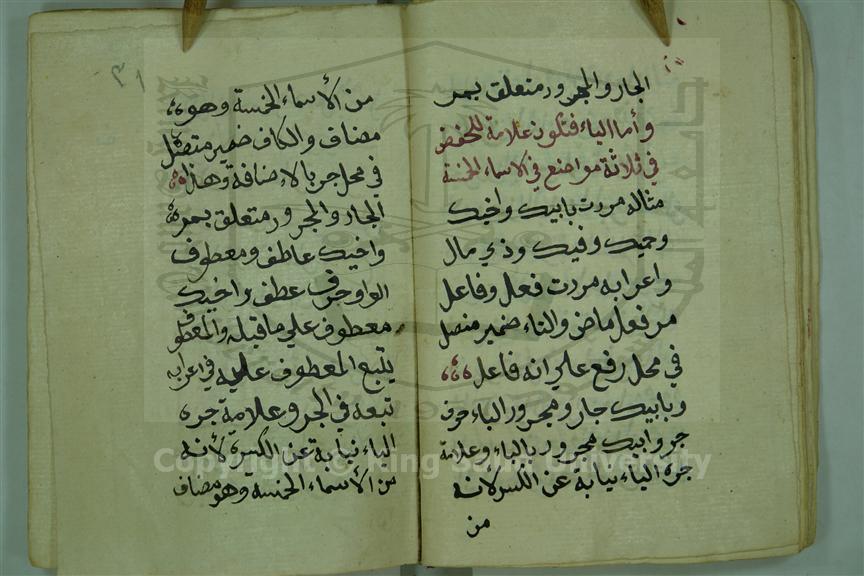 الجار والمجرور متعلق بمر
وأما الياء فتكون علامة للخفض
في ثلاثة مواضع في الاسماء الخمسة
مثاله مررت بابيك واخيك
وحميك وفيك وذي مال
واعرابه مررت فعل وفاعل
مر فعل ماض والتاء ضمير متصل
في محل رفع علي انه فاعل
وبابيك جار ومجرور الباء حرف
جر وابيك مجرور بالباء وعلامة
جره الياء نيابة عن الكسر لانه
من
٣١
من الأسماء الخمسة وهو
مضاف والكاف ضمير متصل
في محل جر بالاضافة وهذا
الجار والمجرور متعلق بمر
واخيك عاطف ومعطوف
الواو حرف عطف واخيك
معطوف علي ما قبله والمعطو
يتبع المعطوف عليه في اعرابه
تبعه في الجر وعلامة جره
الياء نيابة عن الكسرة لأنه
من الأسماء الخمسة وهو مضاف
Copyright © King Saud University